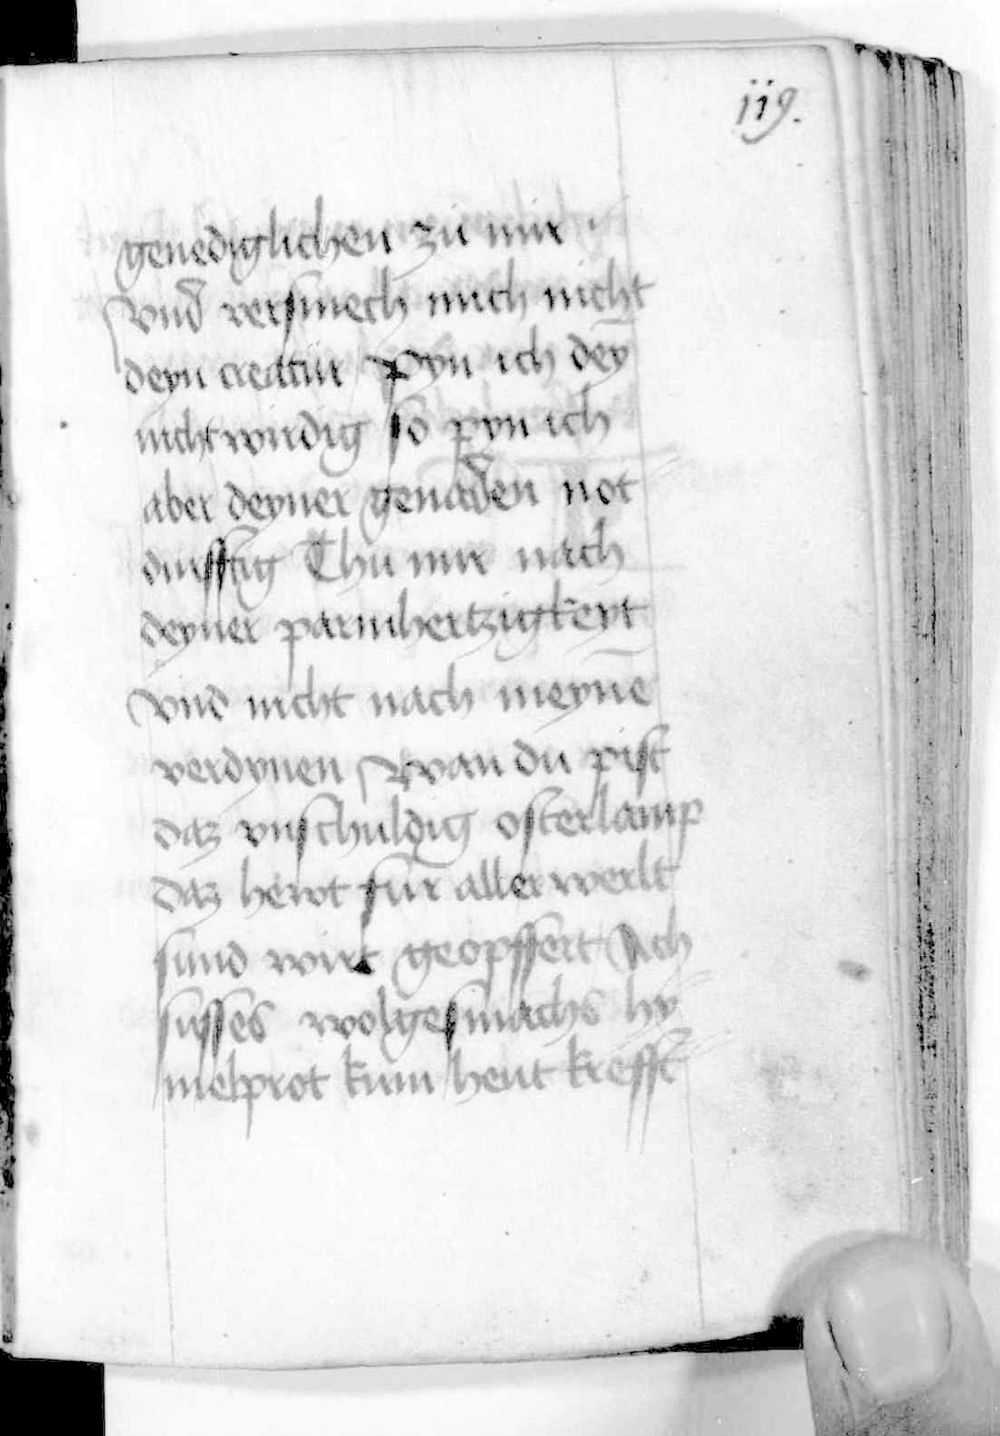 119.
genediglichen zu mir
vnd̄ versmech mich nicht
deyn creatur Pyn ich deȳ
nicht wirdig so pyn ich
aber deyner genaden not
durfftig Thu mir nach
deyner parmhertzigkeyt
vnd nicht nach meynē
verdynen wan du pist
daz vnschuldig osterlamp
daz hewt fur aller werlt
sund wirt geopffert Ach
susses wolgesmachs hy
melprot kum heut krefft